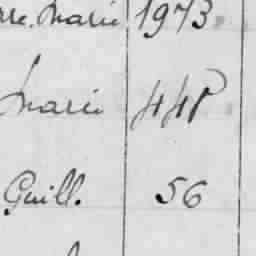 re. Marie 1973
Marie 448
Guill. 56